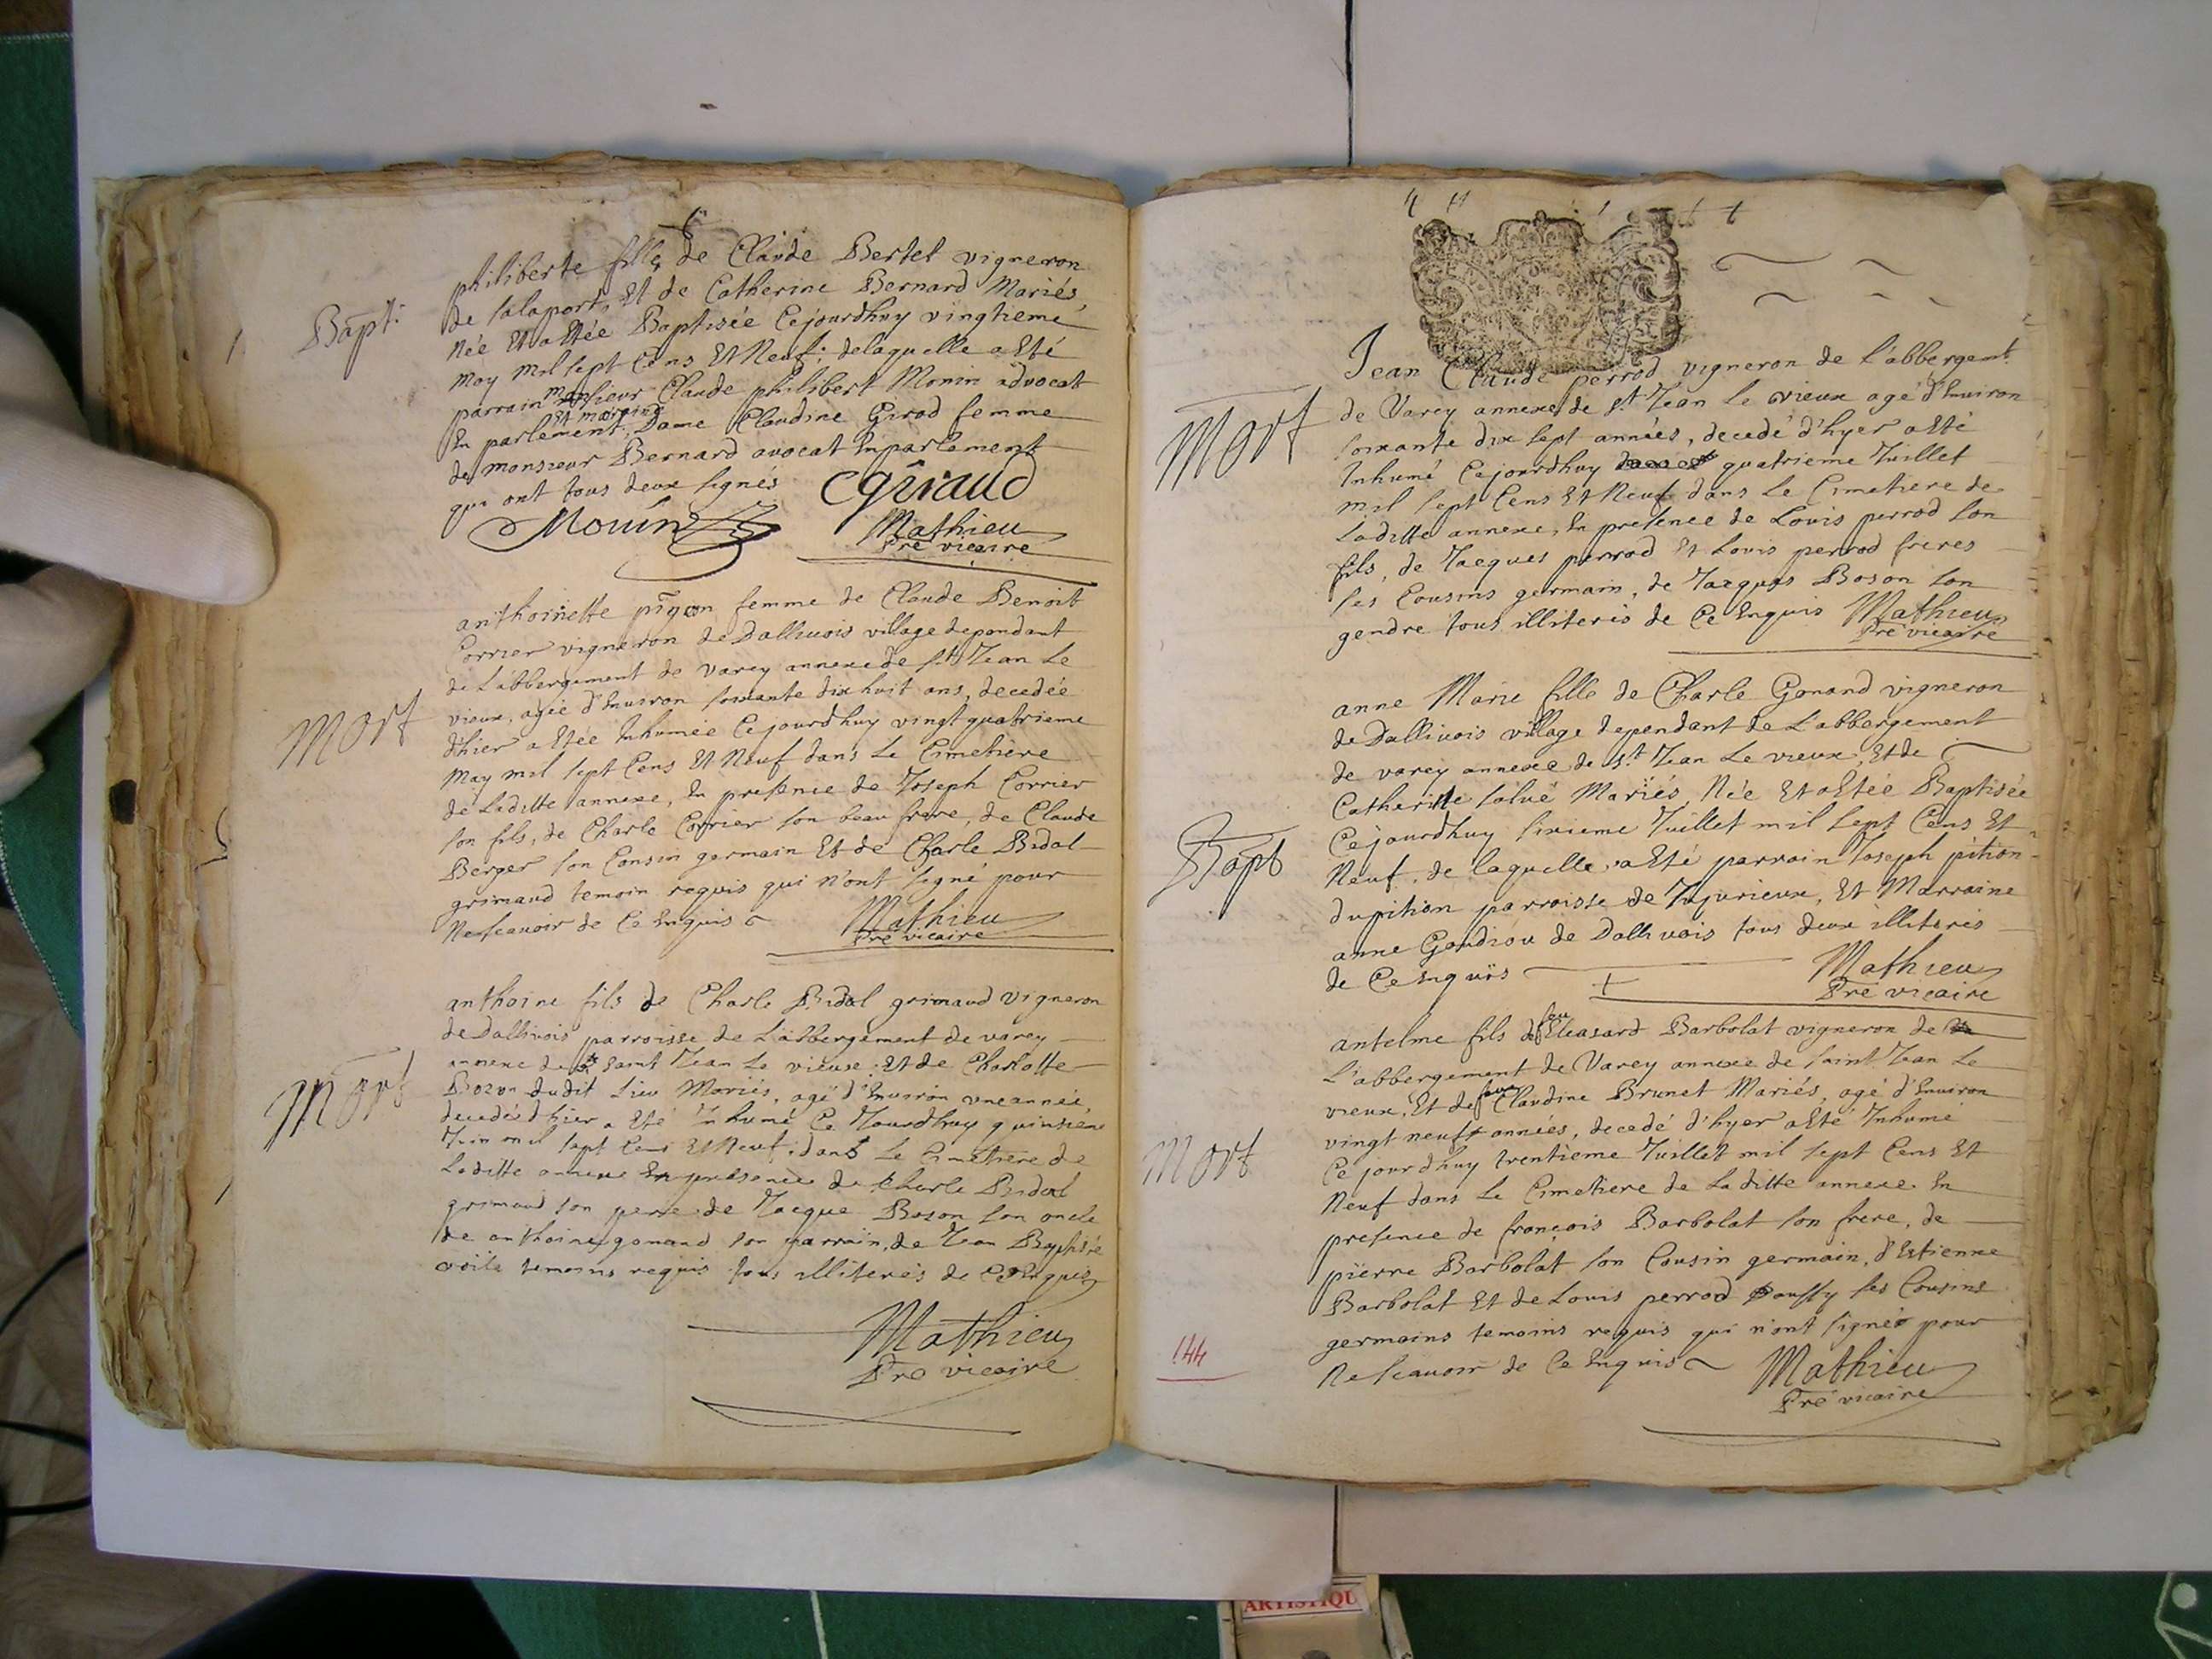 Bapt:
philiberte fille de Claude Bertet vigneron
de salaport, Et de Catherine Bernard Mariés,
Née Et a Etée Baptisée Cejourdhuy vingtieme
May mil sept Cens Et Neuf; delaquelle a Eté
parrain monsieur Claude philibert Monin advocat
En parlement, Et marraine Dame Claudine Girod femme
de monsieur Bernard avocat En parlement
qui ont tous deux signés
CGiraud
Monin
Mathieu
Pre vicaire
Mort
anthoinette pigon femme de Claude Benoit
Corrier vigneron de Dallivois village dependant
de L'abbergement de varey annexe de st Jean Le
vieux, agée d'Environ soixante dix huit ans, decedée
d'hier a Etée Inhumée Cejourdhuy vingt quatrieme
May mil sept Cens Et Neuf dans Le Cimetiere
de Laditte annexe, En presence de Joseph Corrier
son fils, de Charle Corrier son beau frere, de Claude
Berger son Cousin germain Et de Charle Bidal
grimaud temoin requis qui n'ont signé pour
Ne scavoir de Ce Enquis
Mathieu
Pre vicaire
Mort
anthoine fils de Charle Bidal grimaud vigneron
de Dallivois parroisse de L'abbergement de varey
annexe de Saint Jean Le vieux; Et de Charlotte
Bozon dudit Lieu Mariés, agé d'Environ une année,
decedé d'hier a Eté Inhumé Ce Jourdhuy quinsieme
Juin mil sept Cens Et Neuf, dans Le Cimetiere de
Laditte annexe En presence de Charle Bidal
grimaud son pere de Jacque Bozon son oncle
de anthoine gonand son parrain, de Jean Baptiste
temoins requis tous illiterés de Ce Enquis
Mathieu
Pre vicaire
Jean Claude perrod vigneron de L'abbergemt
Mort
de Varey annexe de St Jean Le vieux agé d'Environ
soixante dix sept années, decedé d'hyer a Eté
Inhumé Cejourdhuy quatrieme Juillet
mil sept Cens Et Neuf dans Le Cimetiere de
Laditte annexe, En presence de Louis perrod son
fils, de Jacques perrod Et Louis perrod freres
ses Cousins germain, de Jacques Boson son
gendre tous illiterés de Ce Enquis
Mathieu
Pre vicaire
anne Marie fille de Charle Gonand vigneron
de Dallivois village dependant de L'abbergement
de varey annexe de St Jean Le vieux; Et de
Catherine salué Mariés Née Et a Etée Baptisée
Bapt
Cejourdhuy sixieme Juillet mil sept Cens Et
Neuf, de laquelle a Eté parrain Joseph pition
dupition parroisse de Jujurieux, Et Marraine
anne Goudiou de Dallivois tous deux illiterés
de Ce Enquis
Mathieu
Pre vicaire
antelme fils de feu Eleasard Barbolat vigneron de
L'abbergement de Varey annexe de saint Jean Le
vieux, Et de feue Claudine Brunet Mariés, agé d'Environ
vingt neuf années, decedé d'hyer a Eté Inhumé
Mort
Ce jourdhuy trentieme Juillet mil sept Cens Et
Neuf dans Le Cimetiere de Laditte annexe En
presence de françois Barbolat son frere, de
pierre Barbolat son Cousin germain, d'Estienne
Barbolat Et de Louis perrod ses Cousins
germains temoins requis qui n'ont signé pour
Ne scavoir de Ce Enquis
144
Mathieu
Pre vicaire
ARTISTIQU